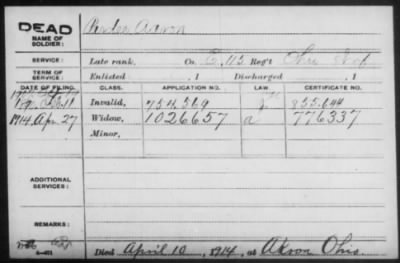 DEAD
NAME OF SOLDIER: Aaron
SERVICE: Late rank, Co. E, 115 Reg't Ohio Inf
TERM OF SERVICE: Enlisted , 1 Discharged , 1
DATE OF FILING. CLASS. APPLICATION NO. LAW. CERTIFICATE NO.
Invalid, 754,369
1914, Apr 27 Widow, 1026657 a 776337
Minor,
ADDITIONAL SERVICES:
REMARKS:
Died April 10, 1914, at Akron Ohio